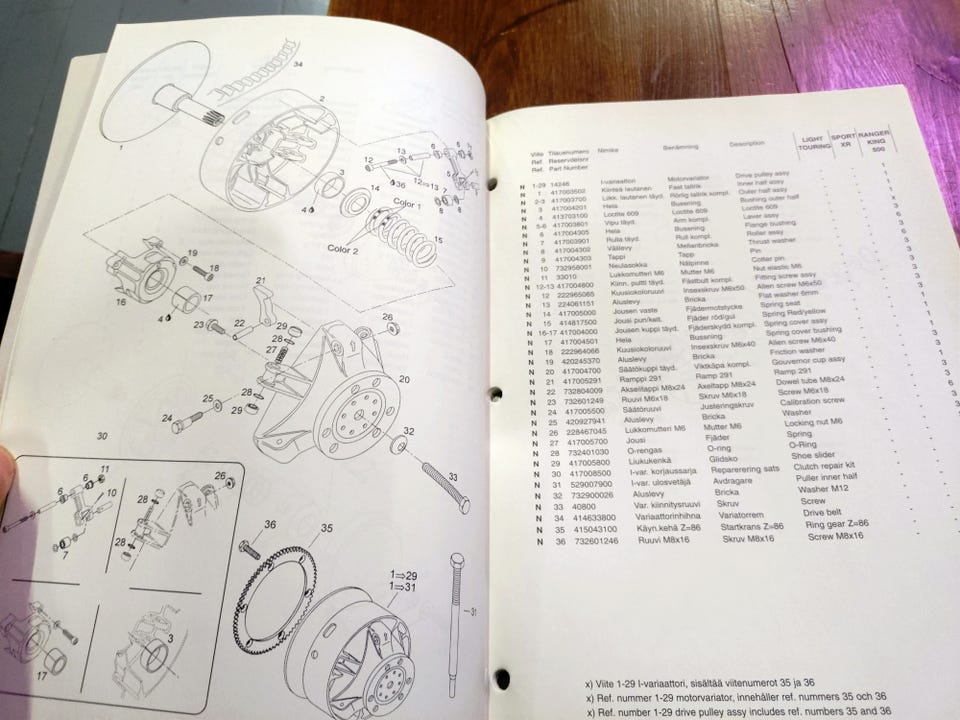 34
2
1
13
12
36
12⇒13
3
4
14
Color 1
15
Color 2
19
18
16
17
4
21
23
22
29
28
27
26
20
25
28
29
24
32
33
30
11
6
6
10
7
28
28
26
17
3
36
35
1⇒29
1⇒31
31
Viite Tilausnumero Nimike Benämning Description LIGHT TOURING SPORT XR RANGER KING 500
Ref. Reservdelsnr
Ref. Part Number
N 1-29 14246 I-variaattori Motorvariator Drive pulley assy
N 1 417003502 Kiinteä lautanen Fast tallrik Inner half assy
N 2-3 417003700 Liikk. lautanen täyd. Rörlig tallrik kompl. Outer half assy
N 3 417004201 Hela Bussning Bushing outer half
N 4 413703100 Loctite 609 Loctite 609 Loctite 609
N 5-6 417003801 Vipu täyd. Arm kompl. Lever assy
N 6 417004305 Hela Bussning Flange bushing
N 7 417003901 Rulla täyd. Rull kompl. Roller assy
N 8 417004302 Välilevy Mellanbricka Thrust washer
N 9 417004303 Tappi Tapp Pin
N 10 732958001 Neulasokka Nålpinne Cotter pin
N 11 33010 Lukkomutteri M6 Mutter M6 Nut elastic M6
N 12-13 417004600 Kiinn. pultti täyd. Fästbult kompl. Fitting screw assy
N 12 222965065 Kuusiokoloruuvi Insexskruv M6x50 Allen screw M6x50
N 13 224061151 Aluslevy Bricka Flat washer 6mm
N 14 417005000 Jousen vaste Fjädermotstycke Spring seat
N 15 414817500 Jousi pun/kelt. Fjäder röd/gul Spring Red/yellow
N 16-17 417004000 Jousen kuppi täyd. Fjäderskydd kompl. Spring cover assy
N 17 417004501 Hela Bussning Spring cover bushing
N 18 222964066 Kuusiokoloruuvi Insexskruv M6x40 Allen screw M6x40
N 19 420245370 Aluslevy Bricka Friction washer
N 20 417004700 Säätökuppi täyd. Viktkåpa kompl. Gouvernor cup assy
N 21 417005291 Ramppi 291 Ramp 291 Ramp 291
N 22 732804009 Akselitappi M8x24 Axeltapp M8x24 Dowel tube M8x24
N 23 732601249 Ruuvi M6x18 Skruv M6x18 Screw M6x18
N 24 417005500 Säätöruuvi Justeringskruv Calibration screw
N 25 420927941 Aluslevy Bricka Washer
N 26 228467045 Lukkomutteri M6 Mutter M6 Locking nut M6
N 27 417005700 Jousi Fjäder Spring
N 28 732401030 O-rengas O-ring O-Ring
N 29 417005800 Liukukenkä Glidsko Shoe slider
N 30 417008500 I-var. korjaussarja Reparerering sats Clutch repair kit
N 31 529007900 I-var. ulosvetäjä Avdragare Puller inner half
N 32 732900026 Aluslevy Bricka Washer M12
N 33 40800 Var. kiinnitysruuvi Skruv Screw
N 34 414633800 Variaattorinhihna Variatorrem Drive belt
N 35 415043100 Käyn.kehä Z=86 Startkrans Z=86 Ring gear Z=86
N 36 732601246 Ruuvi M8x16 Skruv M8x16 Screw M8x16
x) Viite 1-29 I-variaattori, sisältää viitenumerot 35 ja 36
x) Ref. nummer 1-29 motorvariator, innehåller ref. nummers 35 och 36
x) Ref. number 1-29 drive pulley assy includes ref. numbers 35 and 36